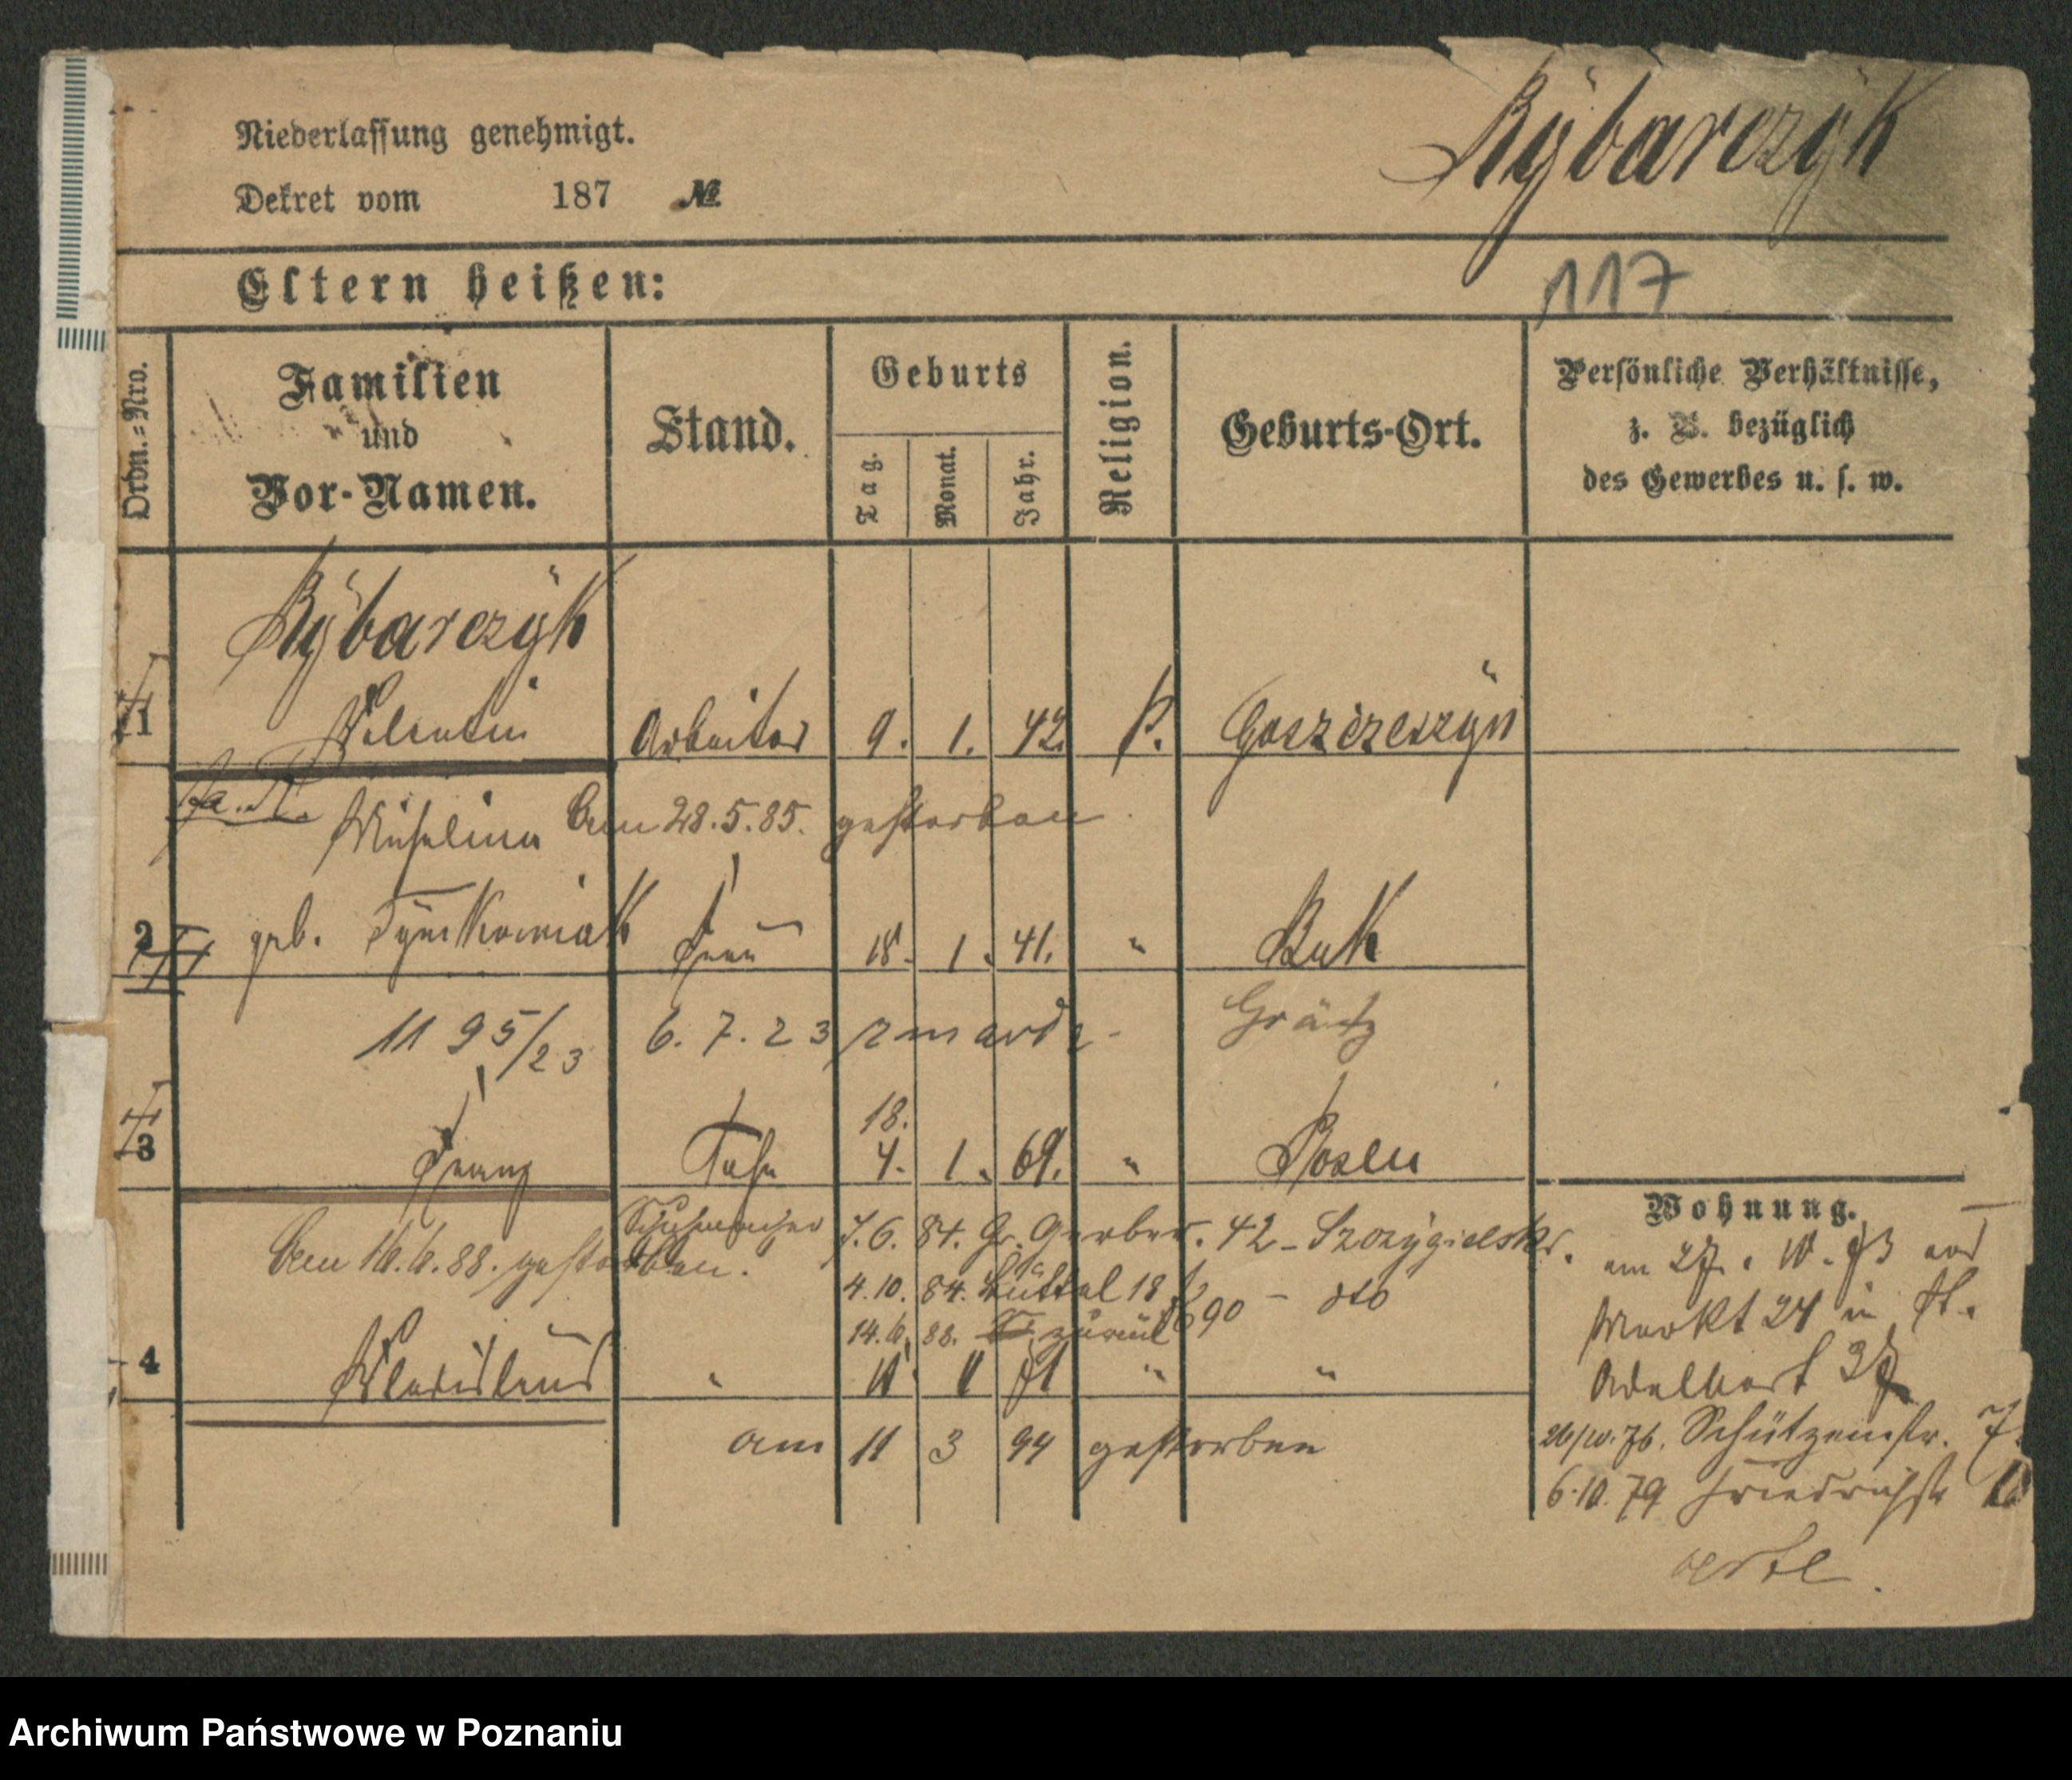 Rÿbarczÿk
Niederlassung genehmigt.
Dekret vom 187 №
117
Eltern heißen:
Ordn.=Nro.
Familien
und
Vor-Namen.
Stand.
Geburts
Tag.
Monat.
Jahr.
Religion.
Geburts-Ort.
Persönliche Verhältnisse,
z. B. bezüglich
des Gewerbes u. s. w.
Rÿbarczÿk
1 Valentin Arbeiter 9. 1. 42.
am 28.5.85. gestorben
2 geb. Frau 18. 1. 41. " Buk
11 95/23 6. 7. 23 zmarła Grätz
18.
3 Franz Sohn 4. 1. 69. " Posen
Wohnung.
Schuhmacher 7.6. 84. Gr. Gerber. 42 -
gestorben.
4.10. 84. 18
90 - dto
14.6. 88. zurück
4 Wladislaus " 11 71 " "
am 27. 10. 73 aus
Markt 24 in St.
Adalbert 37
am 11 3 94 gestorben
26/10.76. Schützenstr. 7.
6.10.79 Friedrichstr